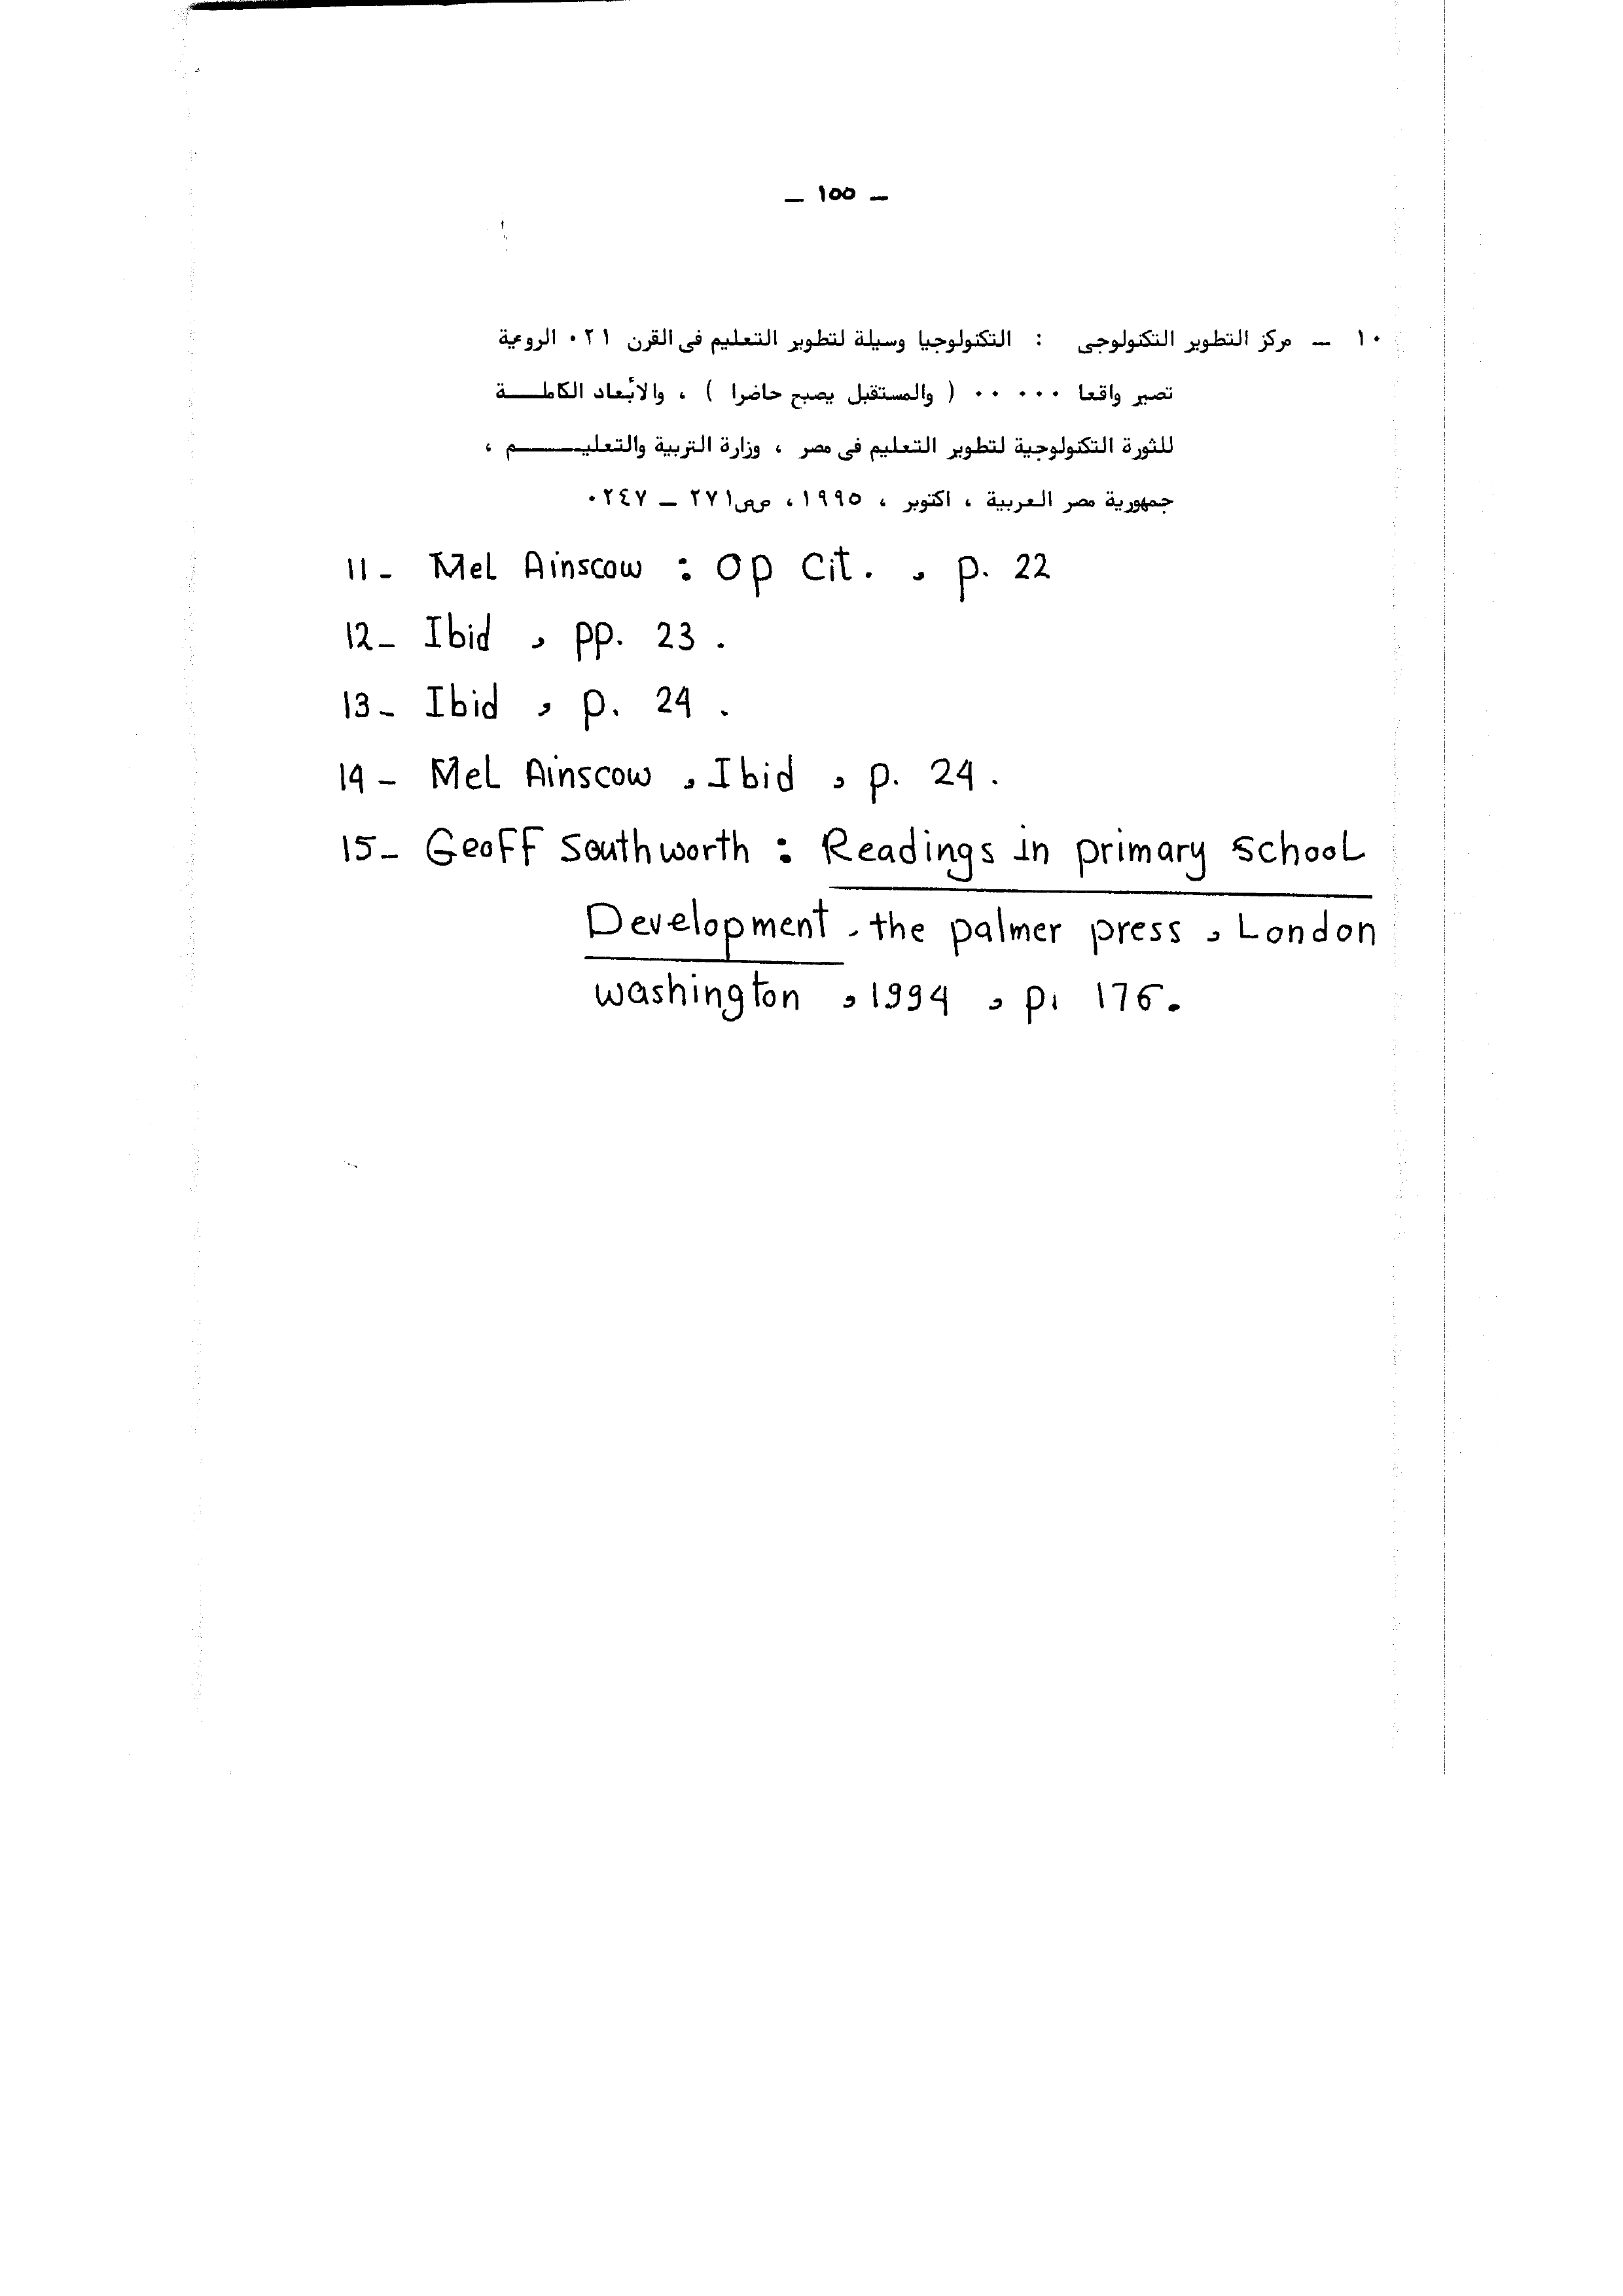 – ١٥٥ –
١٠ – مركز التطوير التكنولوجى : التكنولوجيا وسيلة لتطوير التعليم فى القرن ٢١ ٠ الروءية
تصير واقعا ٠٠ ٠٠٠ ( والمستقبل يصبح حاضرا ) ، والأبعاد الكاملـــة
للثورة التكنولوجية لتطوير التعليم فى مصر ، وزارة التربية والتعليـــــم ،
جمهورية مصر العربية ، اكتوبر ، ١٩٩٥، صص٢٧١ – ٢٤٧٠
11- Mel Ainscow : Op Cit. , p. 22
12- Ibid , pp. 23 .
13- Ibid , p. 24 .
14- Mel Ainscow , Ibid , p. 24 .
15- Geoff Southworth : Readings in primary School
Development , the palmer press , London
washington , 1994 , p. 176.